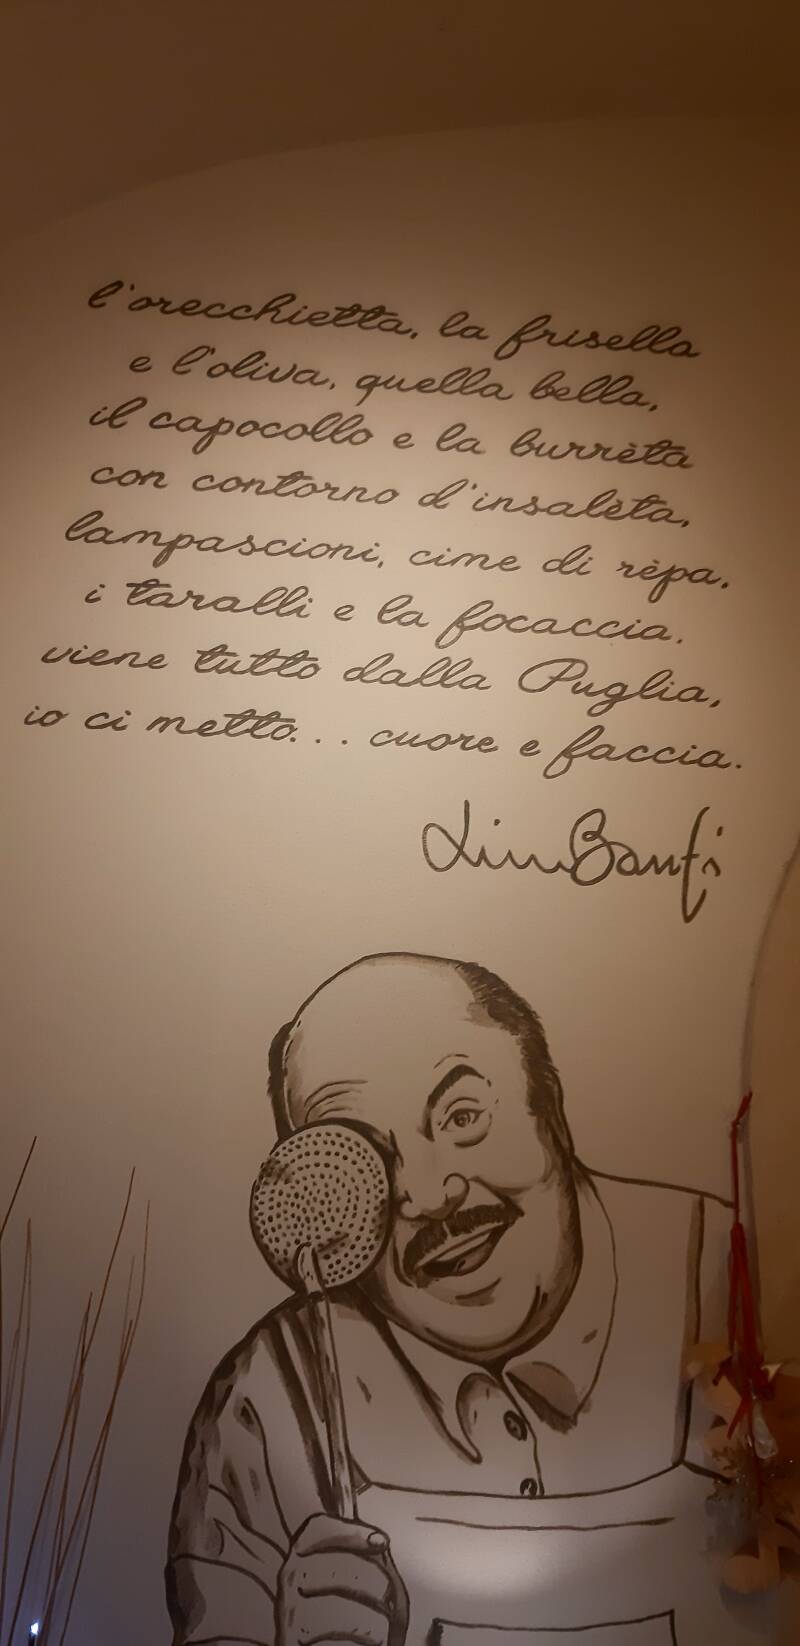 l'orecchietta, la frisella
e l'oliva, quella bella,
il capocollo e la burrèta
con contorno d'insalèta,
lampascioni, cime di rèpa,
i taralli e la focaccia.
viene tutto dalla Puglia,
io ci metto... cuore e faccia.
Lino Banfi